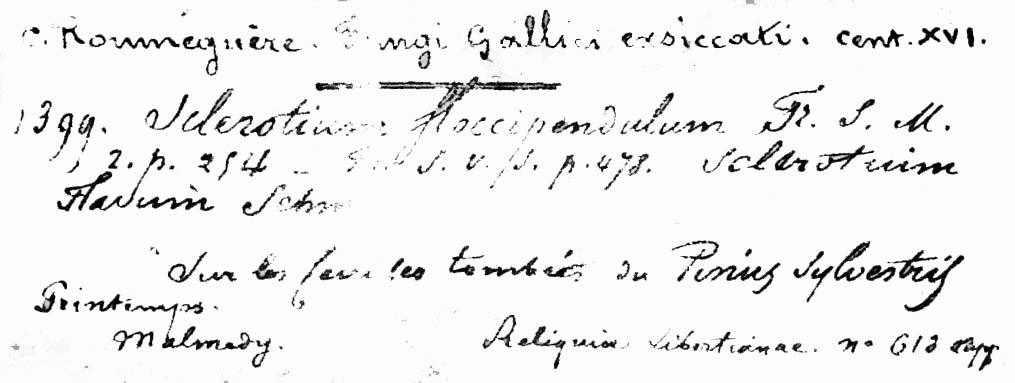 C. Roumeguère. Fungi Gallici exsiccati. Cent. XVI.
1399. Sclerotium floccipendulum Fr. S. M.
2. p. 254 _ S. V. S. p. 478. Sclerotium
flavum
Sur les feuilles tombées du Pinus sylvestris
Printemps.
Malmedy. Reliquiae Libertianae. no 613